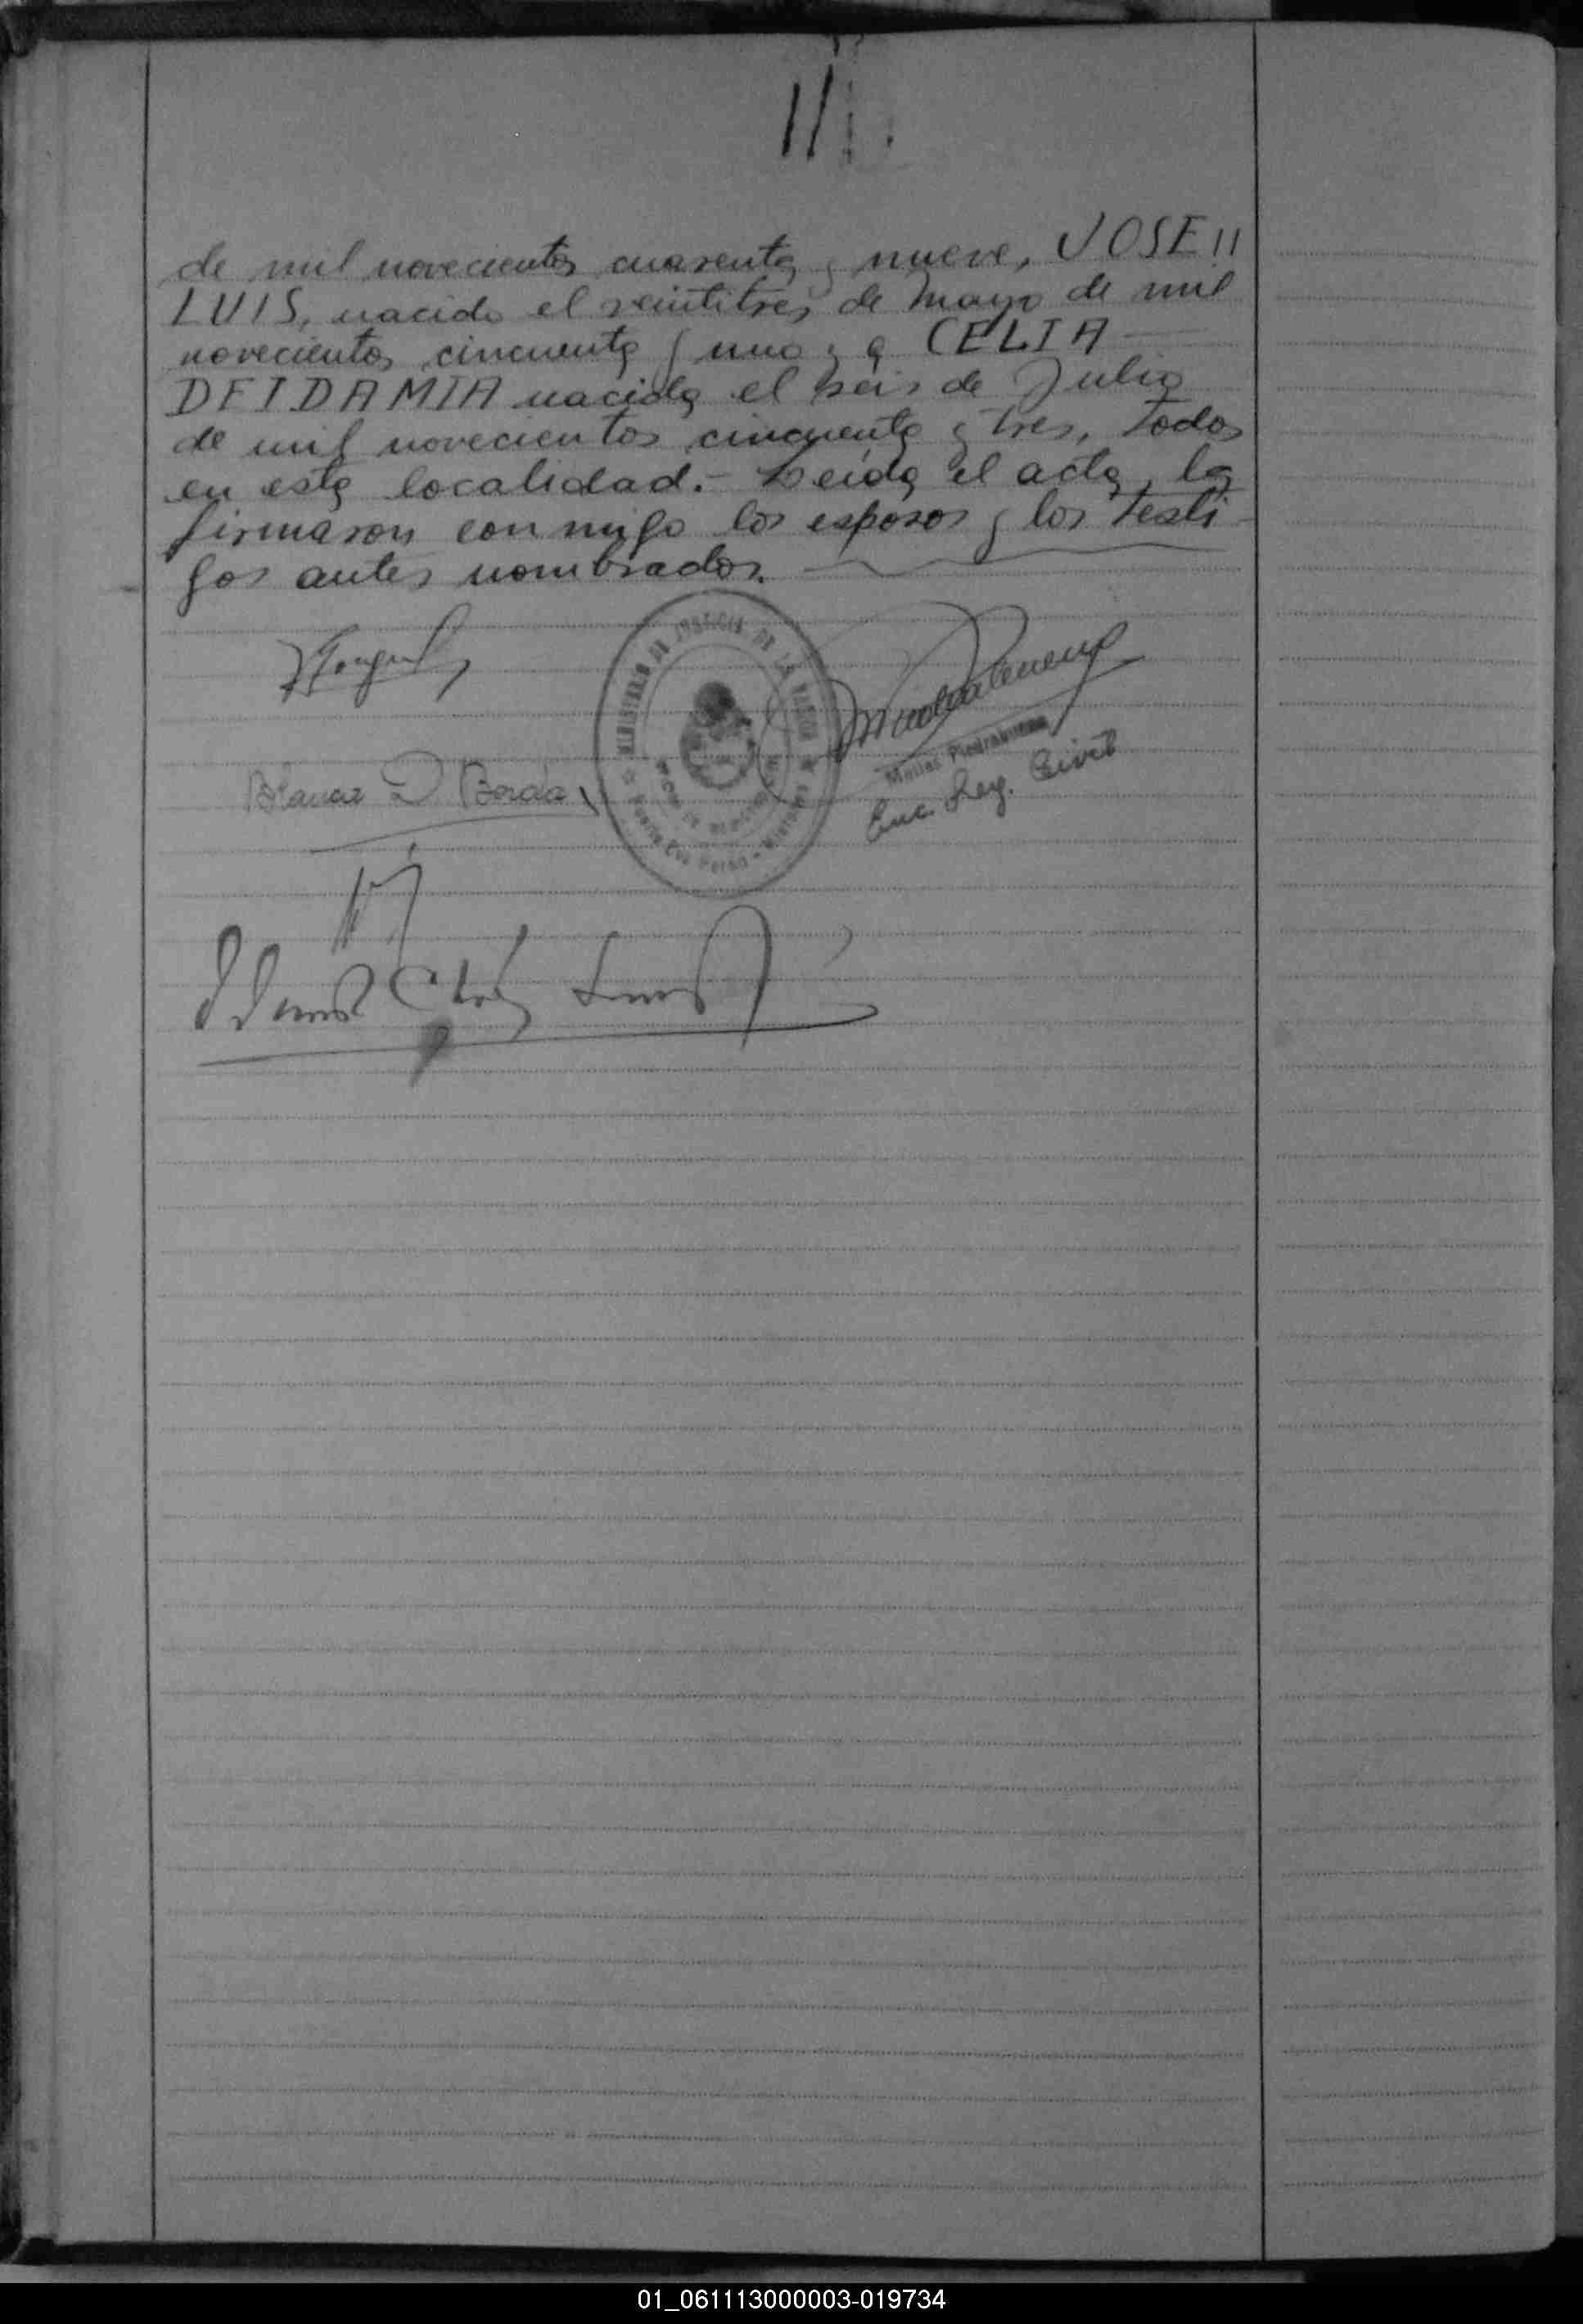 ///.
de mil novecientos cuarenta y nueve, JOSE //
LUIS, nacido el veintitres de Mayo de mil
novecientos cincuenta y uno y a CELIA
DEIDAMIA nacida el seis de Julio
de mil novecientos cincuenta y tres, todos
en esta localidad.- Leida el acta, la
firmaron conmigo los esposos y los testi-
gos antes nombrados.
MINISTERIO DE JUSTICIA DE LA NACION
Puerto Eva Perón - Misiones
Matias Piedrabuena
Enc. Reg. Civil
Blanca D Borda
01_061113000003-019734